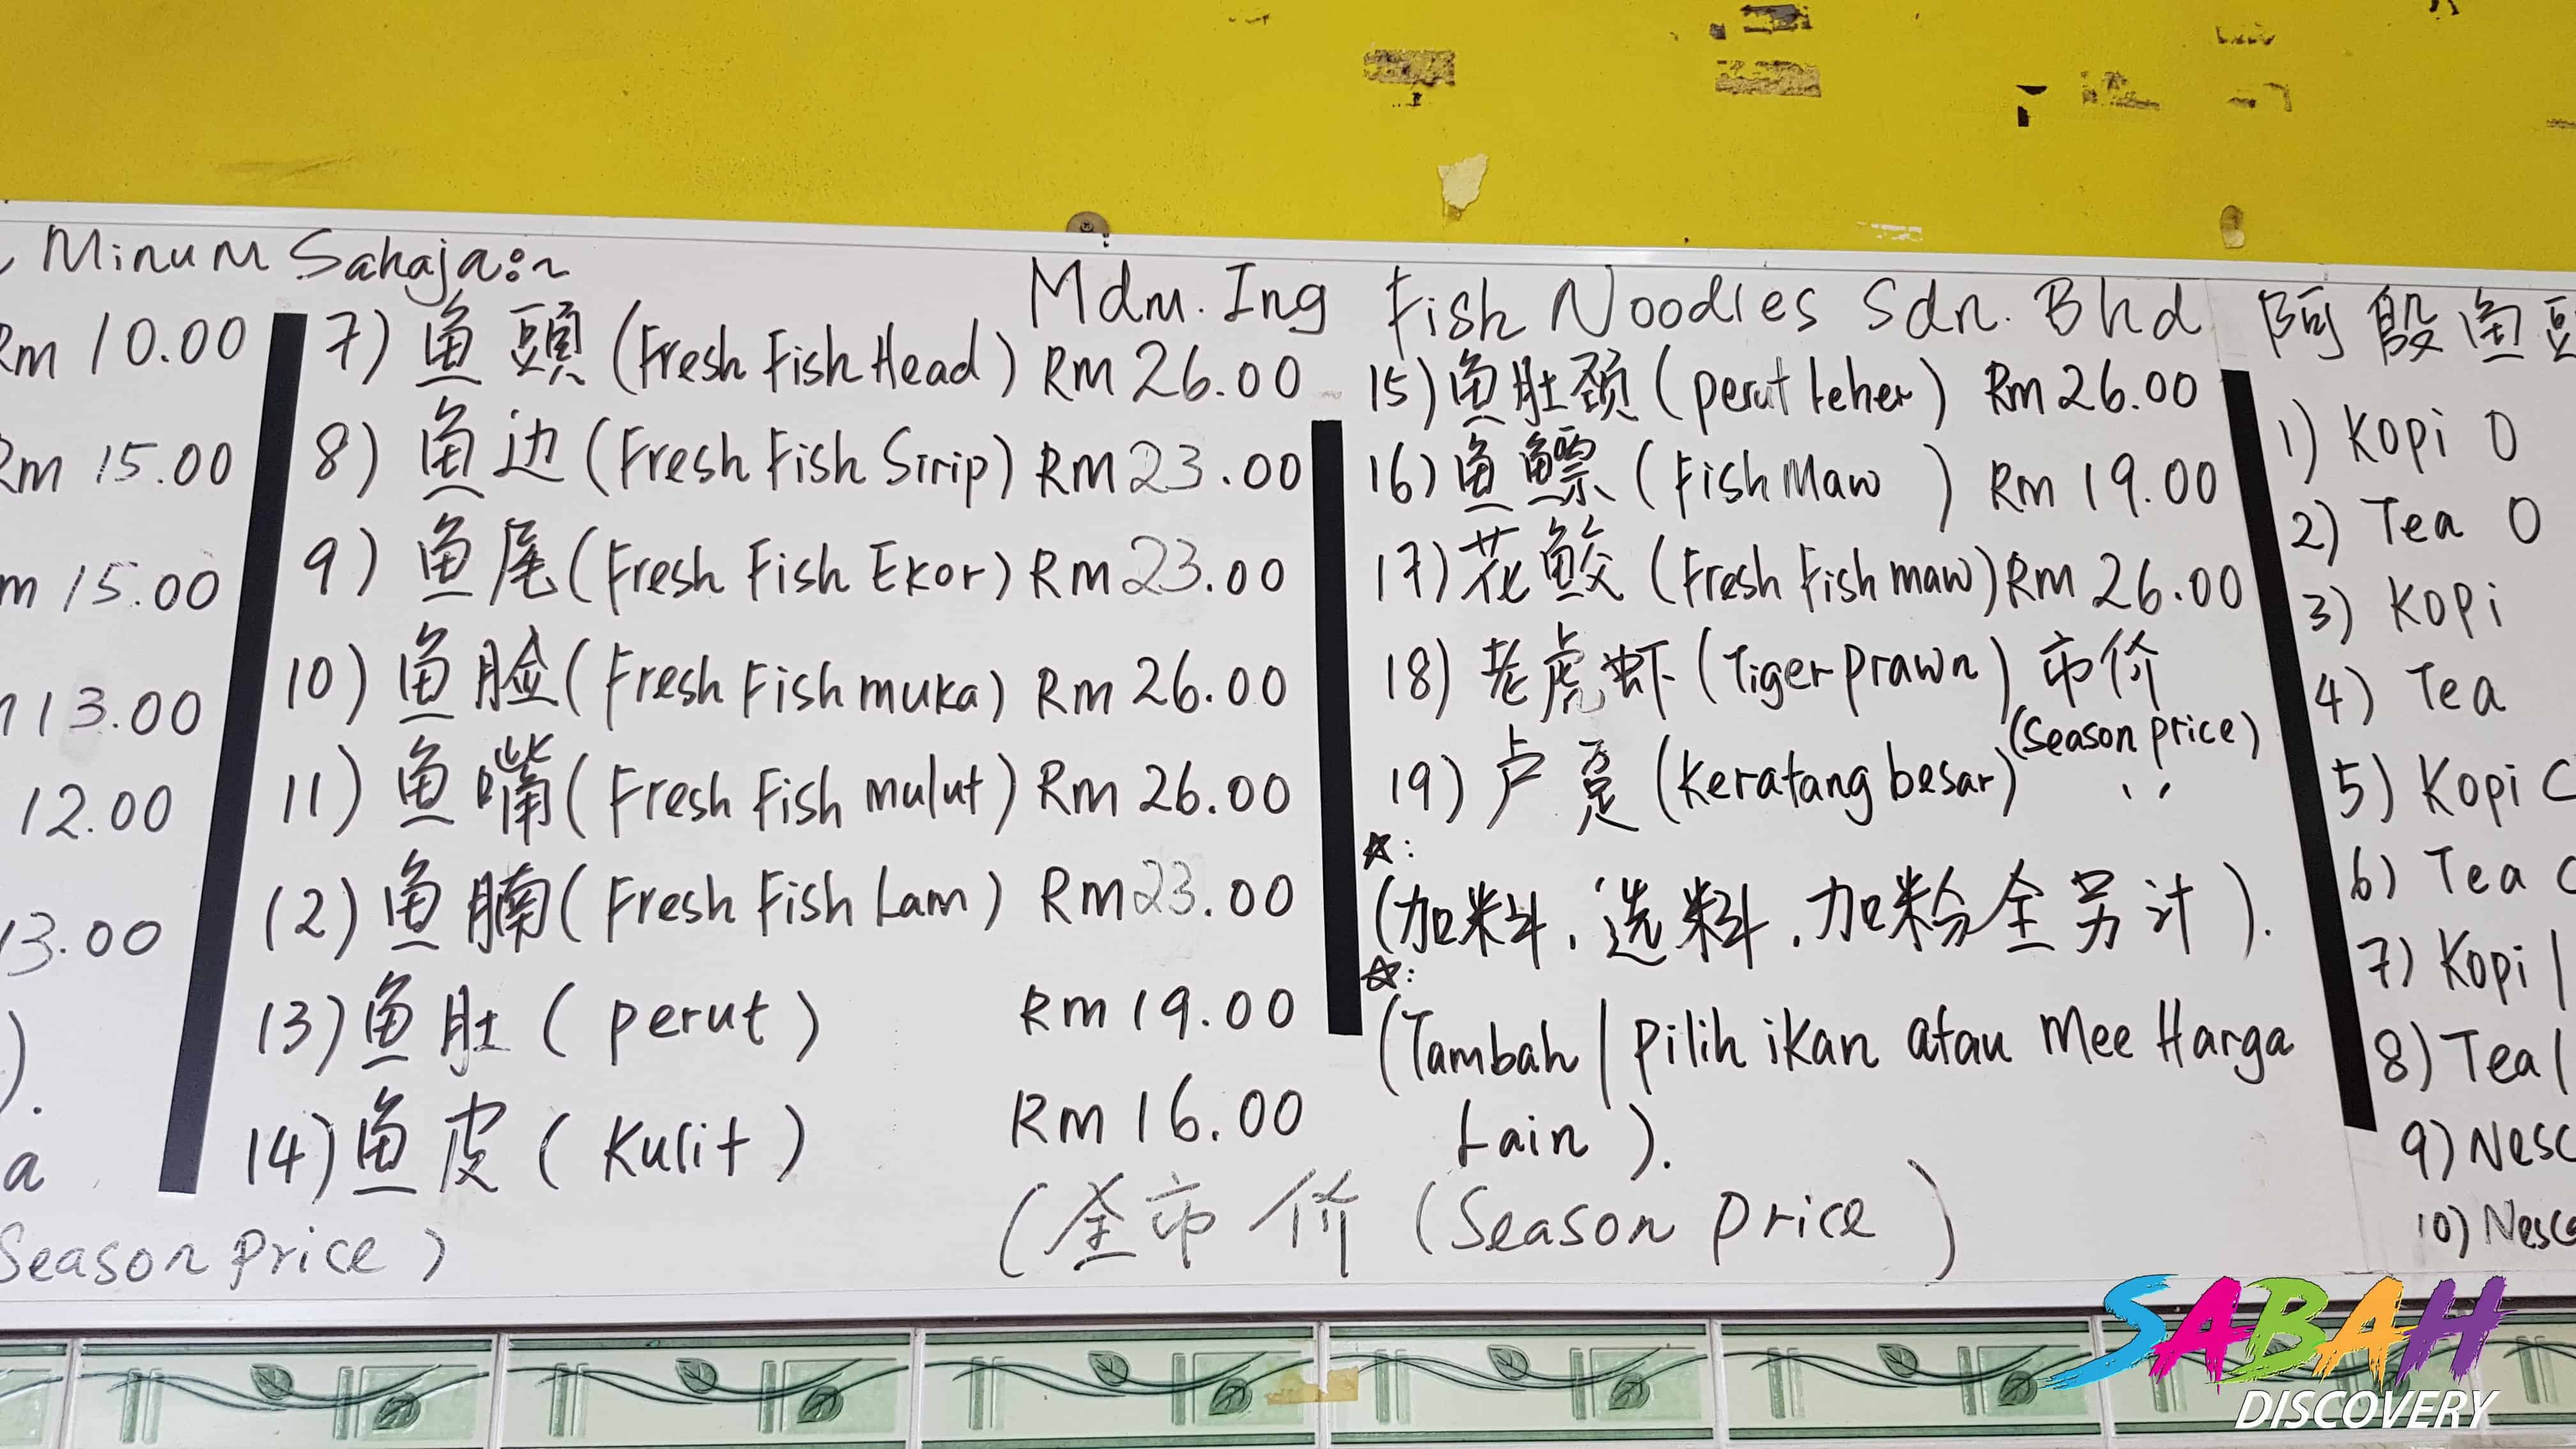 Minum Sahaja:~
Rm 10.00
Rm 15.00
m 15.00
13.00
12.00
13.00
).
a
Season price)
7) 鱼頭 (Fresh Fish Head) Rm 26.00
8) 鱼边 (Fresh Fish Sirip) Rm 23.00
9) 鱼尾 (Fresh Fish Ekor) Rm 23.00
10) 鱼脸 (Fresh Fish muka) Rm 26.00
11) 鱼嘴 (Fresh Fish mulut) Rm 26.00
12) 鱼腩 (Fresh Fish Lam) Rm 23.00
13) 鱼肚 (perut) Rm 19.00
14) 鱼皮 (Kulit) Rm 16.00
Mdm. Ing Fish Noodles Sdn. Bhd
15) 鱼肚颈 (perut Leher) Rm 26.00
16) 鱼鳔 (Fish Maw) Rm 19.00
17) 花鮫 (Fresh Fish maw) Rm 26.00
18) 老虎虾 (Tiger Prawn) 市价
(Season price)
19) 卢趸 (Keratang besar) ''
☆:
(加料.选料.加粉全另计).
☆:
(Tambah | Pilih ikan atau Mee Harga
Lain).
(全市价 (Season price)
阿殷鱼
1) Kopi O
2) Tea O
3) Kopi
4) Tea
5) Kopi C
6) Tea C
7) Kopi |
8) Tea |
9) Nesc
10) Nesc
SABAH
DISCOVERY